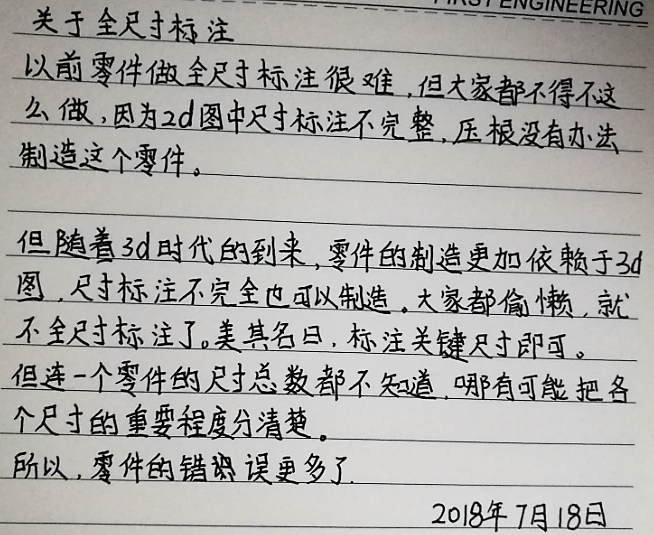 FIRST ENGINEERING
关于全尺寸标注
以前零件做全尺寸标注很难,但大家都不得不这
么做,因为2d图中尺寸标注不完整,压根没有办法
制造这个零件。
但随着3d时代的到来,零件的制造更加依赖于3d
图,尺寸标注不完全也可以制造。大家都偷懒,就
不全尺寸标注了。美其名曰,标注关键尺寸即可。
但连一个零件的尺寸总数都不知道,哪有可能把各
个尺寸的重要程度分清楚。
所以,零件的错误更多了.
2018年7月18日